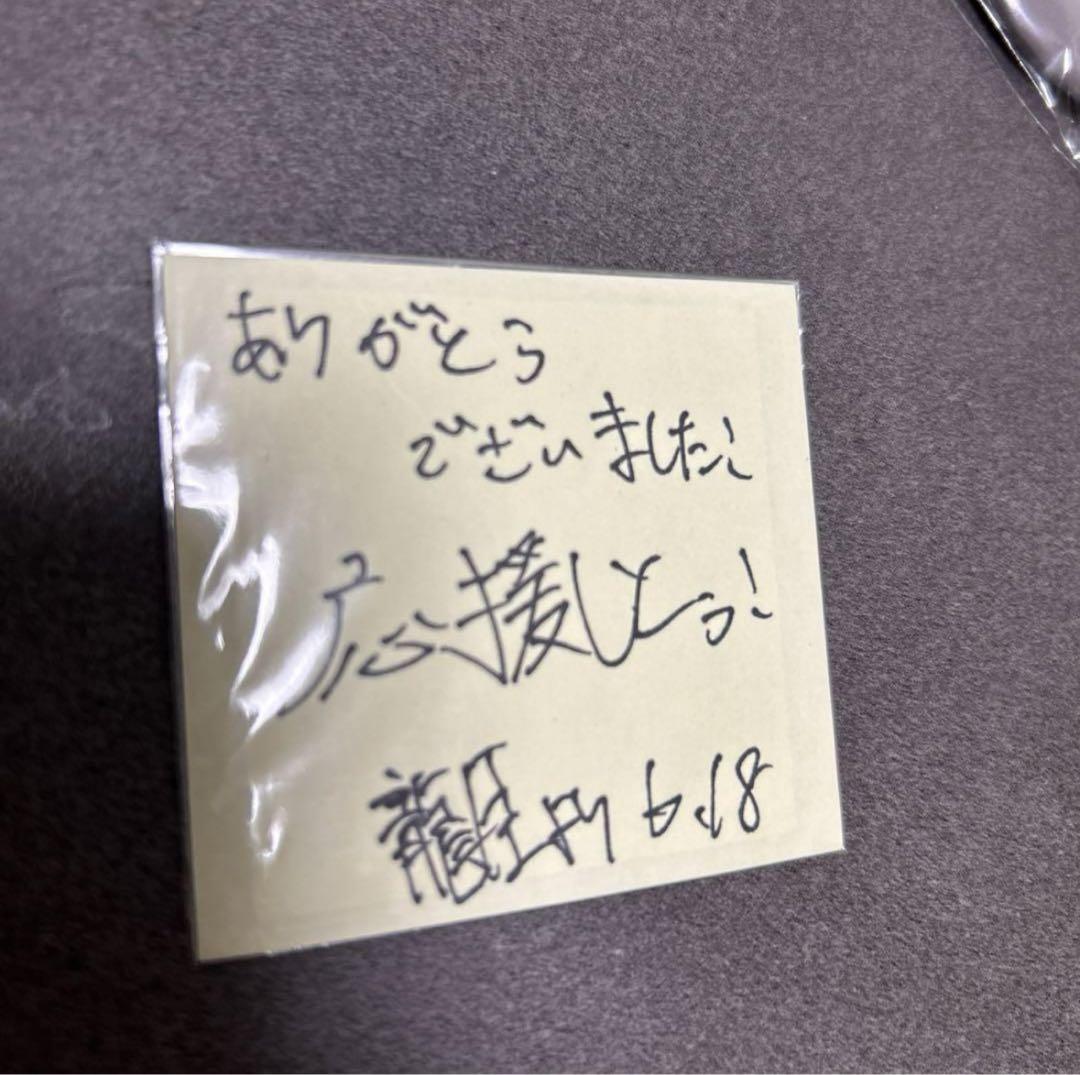 ありがとう
ございました!
応援しとっ!
龍臣より 6.18